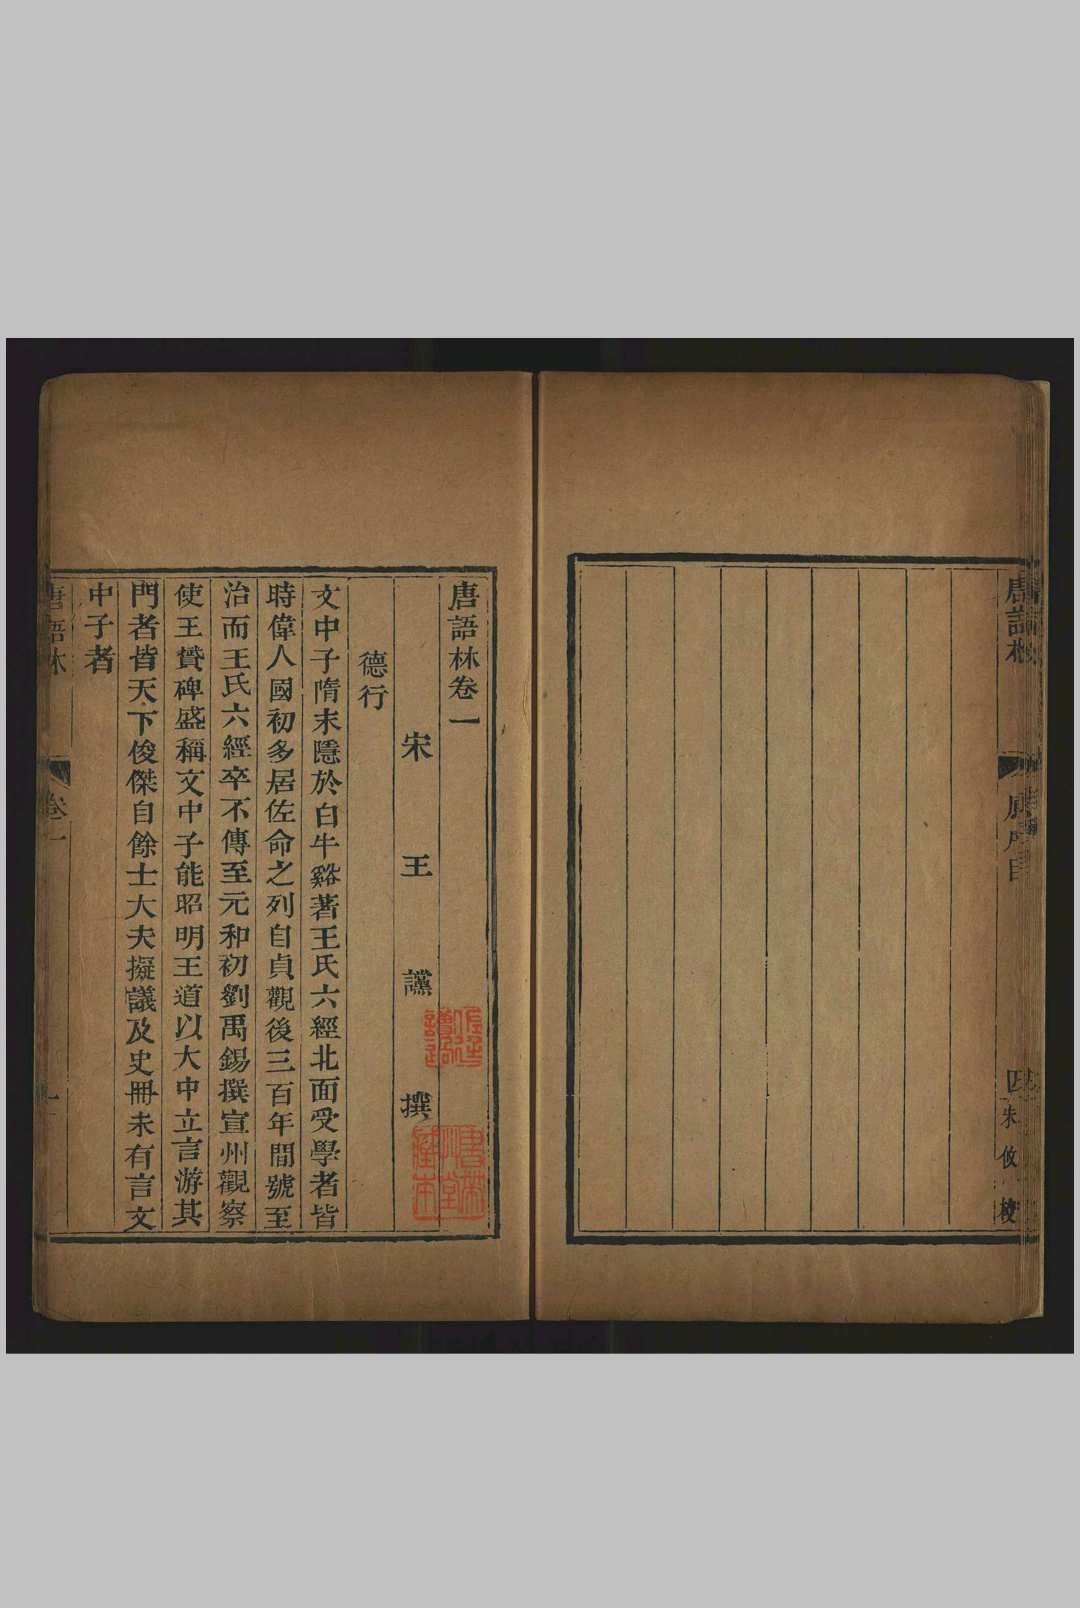 唐語林
四
朱攸校
唐語林卷一
宋王讜撰
德行
文中子隋末隱於白牛谿著王氏六經北面受學者皆
時偉人國初多居佐命之列自貞觀後三百年間號至
治而王氏六經卒不傳至元和初劉禹錫撰宣州觀察
使王贊碑盛稱文中子能昭明王道以大中立言游其
門者皆天下俊傑自餘士大夫擬議及史冊未有言文
中子者
唐語林
卷一
一